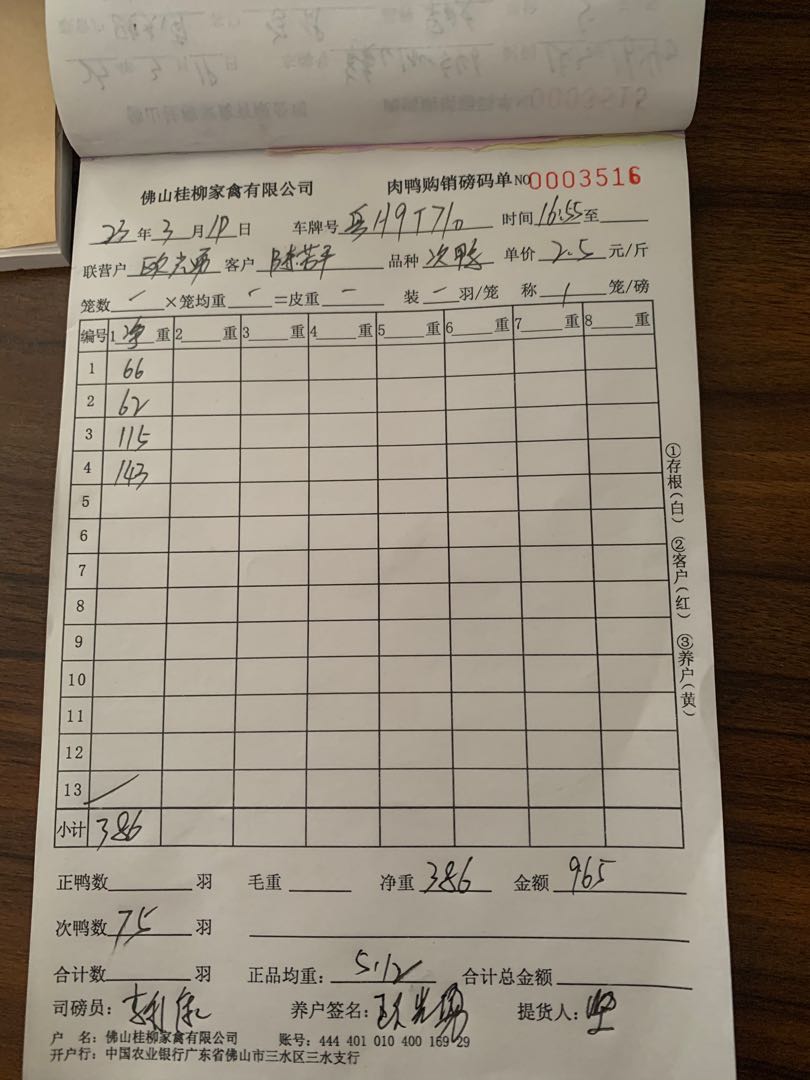 0003515
佛山桂柳家禽有限公司 肉鸭购销磅码单 NO0003516
23年3月18日 车牌号 粤H9T710 时间16:55至
联营户 欧光勇 客户 陈若平 品种 次鸭 单价 2.5 元/斤
笼数 — ×笼均重 — =皮重 — 装 — 羽/笼 称 1 笼/磅
编号 1 净 重 2 重 3 重 4 重 5 重 6 重 7 重 8 重
1 66
2 62
3 115
4 143
5
6
7
8
9
10
11
12
13
小计 386
①存根(白) ②客户(红) ③养户(黄)
正鸭数 羽 毛重 净重 386 金额 965
次鸭数 75 羽
合计数 羽 正品均重: 5.12 合计总金额
司磅员: 养户签名: 欧光勇 提货人:
户 名: 佛山桂柳家禽有限公司 账号: 444 401 010 400 169 29
开户行: 中国农业银行广东省佛山市三水区三水支行